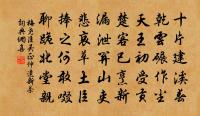 十片建溪春
乾雲碾作塵
天王初受貢
楚客已烹新
漏泄關山吏
悲哀草土臣
捧之何敢啜
聊跪北堂親
梅堯臣吳正仲遺新茶
詞典網